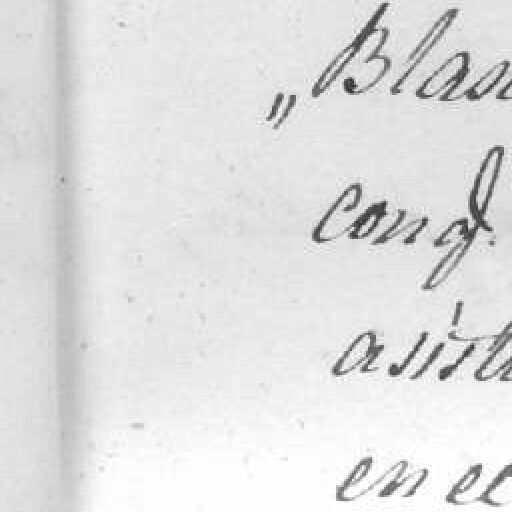 „Blas
conq.
asist
en el